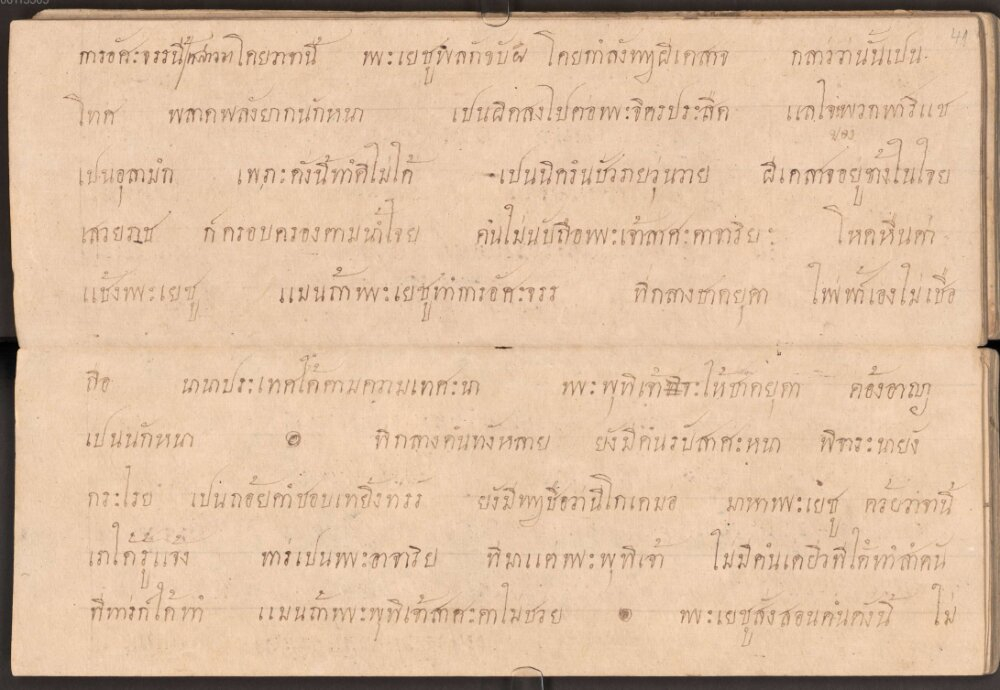 การอัศะจรรนี้ โดยวาจานี้ พระเยซูพิลกัจบัผิ โดยกำลังพญผีเดสาจ กลาวว่านั้นเป็น 41
โทศ พลาดพลังยากนักหนา เป็นผิดสงไปต่อพระจิตรประสิด แลใจพวกพาริแช
ของ
เป็นอุลามัก เพราะดังนี้ทำดีไม่ได้ เป็นนิดรันชัวภยวุ่นวาย ผีเดสาจอยู่ข้างในใจย
เสวยราช ก็ครอบครองตามน้ำใจย คนไม่นับถือพระเจ้าสาศะดาจาริยะ โหดหืนด่า
แช้งพระเยซู แมนถ้าพระเยซูทำการอัศะจรร ที่กลางชาดยุดา ไพ่พ้าเองไม่เชื่อ
ถือ นานาประเทศได้ตามความเทศะนา พระพุทิเจ้าจะให้ชาดยุดา ต้องอาญา
เป็นนักหนา ๏ ที่กลางคนทังหลาย ยังมีคนรับสาศะหนา พิจาระนายัง
กระไรย เป็นถอ้ยคำชอบเทยิ้งทรร ยังมีพญชื่อว่านีโกเดมอ มาหาพระเยซู ดว้ยวาจานี้
เราได้รู้แจ้ง ท่ารเป็นพระอาจาริย ที่มาแต่พระพุทิเจ้า ไม่มีคนเดยิวที่ได้ทำสำคัน
ที่ท่ารก็ได้ทำ แมนถ้าพระพุทิเจ้าสาศะดาไม่ชวย ๏ พระเยซูสังสอนคนดังนี้ ไม่